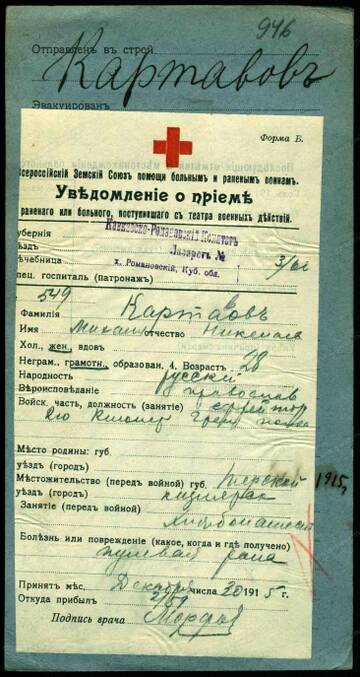 946
Отправленъ въ строй
Картавовъ
Эвакуированъ
Форма Б.
Всероссійскій Земскій Союзъ помощи больнымъ и раненымъ воинамъ.
Увѣдомленіе о пріемѣ
раненаго или больного, поступившаго съ театра военныхъ дѣйствій.
Губернія
Уѣздъ
Лечебница
Спец. госпиталь (патронажъ)
Романовскій Комитетъ
Лазаретъ №
х. Романовскій, Куб. обл.
549
Фамилія Картавовъ
Имя Михаилъ отчество Николаев
Хол., жен., вдовъ
Неграм., грамотн., образован. 4. Возрастъ 28
Народность русскій
Вѣроисповѣданіе православ
Войск. часть, должность (занятіе) ефрейтор
полка
Мѣсто родины: губ.
уѣздъ (городъ)
Мѣстожительство (передъ войной) губ. Терской 1915,
уѣздъ (городъ)
Занятіе (передъ войной)
Хлѣбопашест
Болѣзнь или поврежденіе (какое, когда и гдѣ получено)
пулевая рана
Принятъ мѣс. Декабря числа 20 1915 г.
Откуда прибылъ
Подпись врача